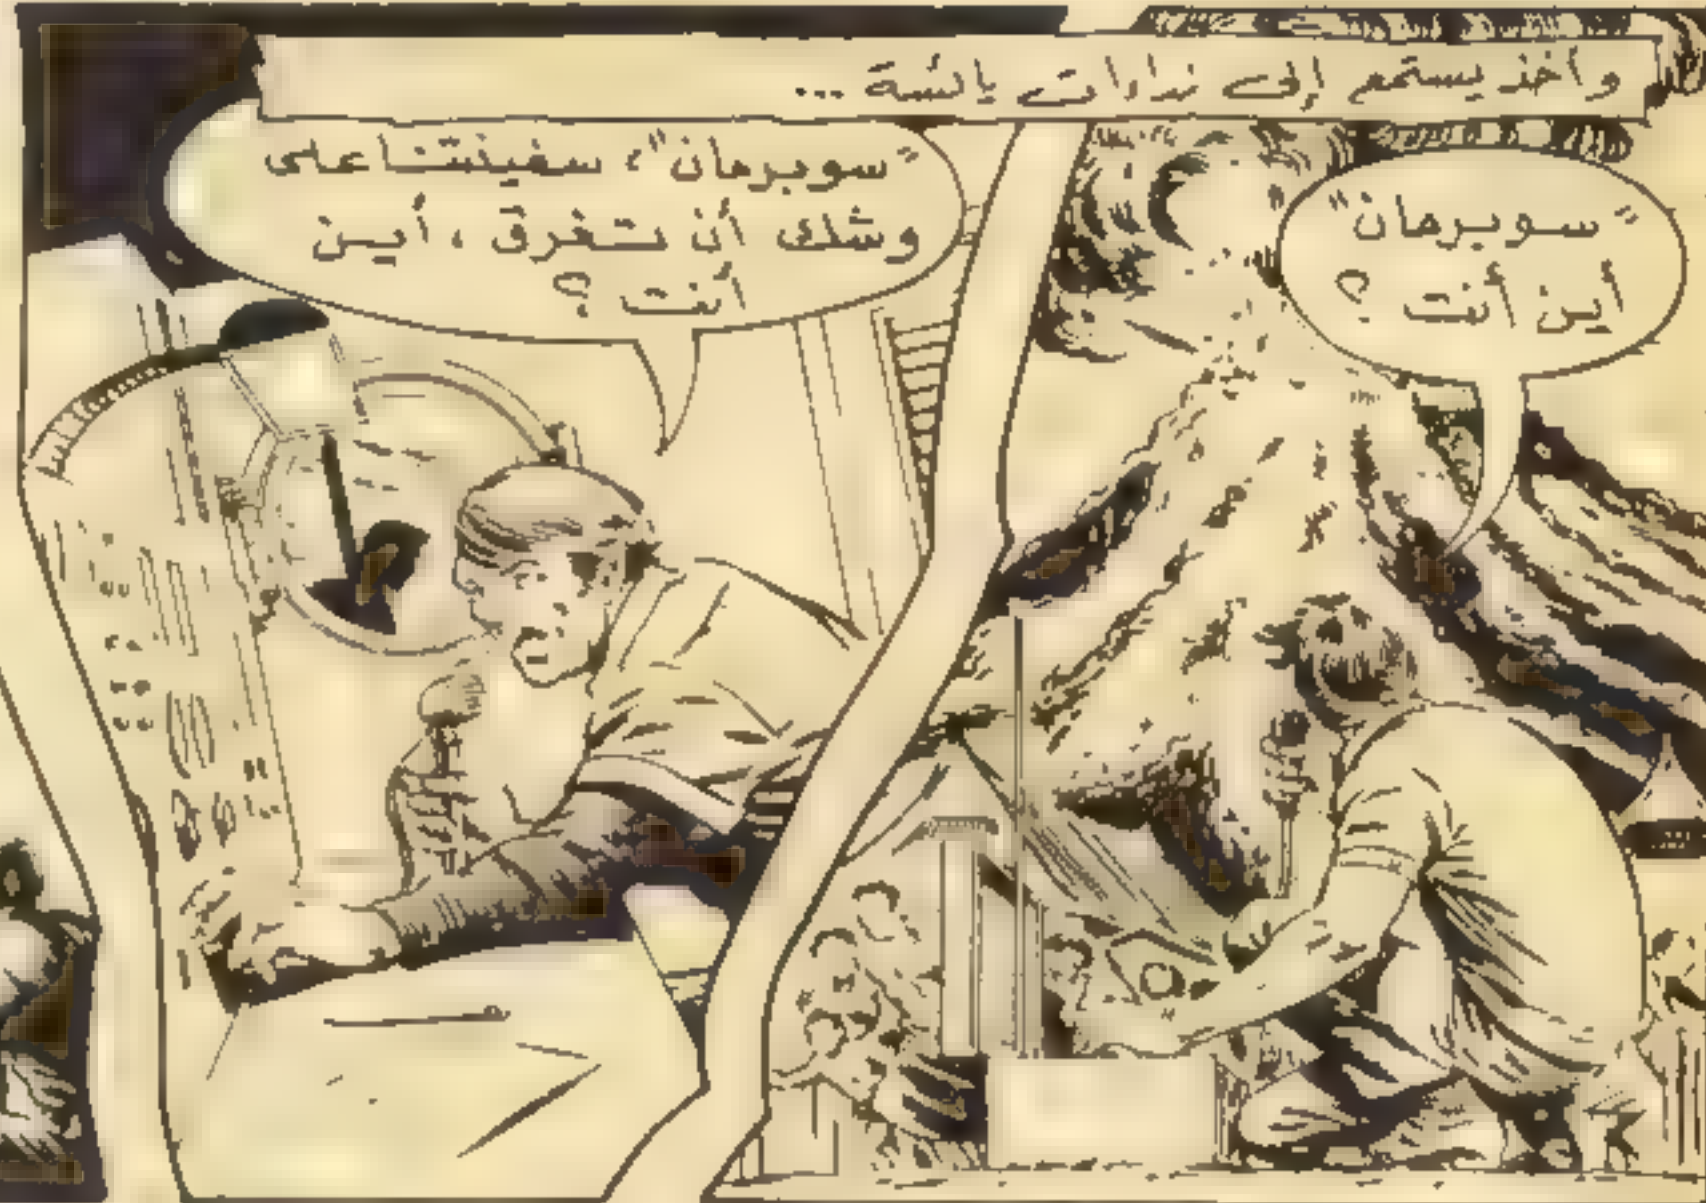 وأخذ يستمع إلى نداءات يائسة ...
"سوبرمان"
أين أنت ؟
"سوبرمان"، سفينتنا على
وشك أن تغرق ، أين
أنت ؟